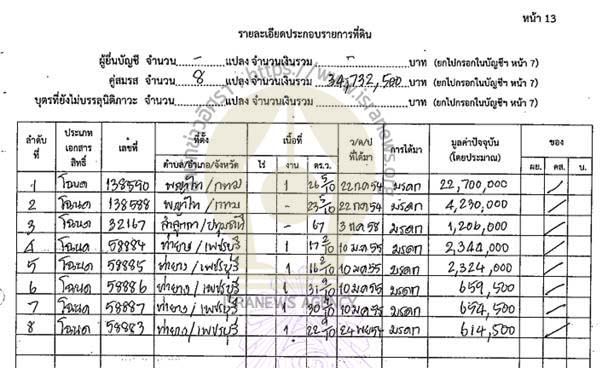 หน้า 13
รายละเอียดประกอบรายการที่ดิน
ผู้ยื่นบัญชี จำนวน - แปลง จำนวนเงินรวม - บาท (ยกไปกรอกในบัญชีฯ หน้า 7)
คู่สมรส จำนวน 8 แปลง จำนวนเงินรวม 34,732,500 บาท (ยกไปกรอกในบัญชีฯ หน้า 7)
บุตรที่ยังไม่บรรลุนิติภาวะ จำนวน แปลง จำนวนเงินรวม บาท (ยกไปกรอกในบัญชีฯ หน้า 7)
ลำดับที่ ประเภทเอกสารสิทธิ์ เลขที่ ที่ตั้ง เนื้อที่ ว/ด/ป ที่ได้มา การได้มา มูลค่าปัจจุบัน (โดยประมาณ) ของ
ตำบล/อำเภอ/จังหวัด ไร่ งาน ตร.ว. ผย. คส. บ.
1 โฉนด 138590 พญาไท/กทม 1 26 5/10 22 กค 54 มรดก 22,700,000 /
2 โฉนด 138588 พญาไท/กทม - 23 5/10 22 กค 54 มรดก 4,230,000 /
3 โฉนด 32167 ลำลูกกา/ปทุมธานี - 67 3 กค 58 มรดก 1,206,000 /
4 โฉนด 58884 ท่ายาง/เพชรบุรี 1 17 10 มค 55 มรดก 2,344,000 /
5 โฉนด 58885 ท่ายาง/เพชรบุรี 1 16 10 มค 55 มรดก 2,324,000 /
6 โฉนด 58886 ท่ายาง/เพชรบุรี 1 31 10 มค 55 มรดก 659,500 /
7 โฉนด 58887 ท่ายาง/เพชรบุรี 1 30 10 มค 55 มรดก 654,500 /
8 โฉนด 58883 ท่ายาง/เพชรบุรี 1 22 24 พย 54 มรดก 614,500 /
ISRANEWS AGENCY